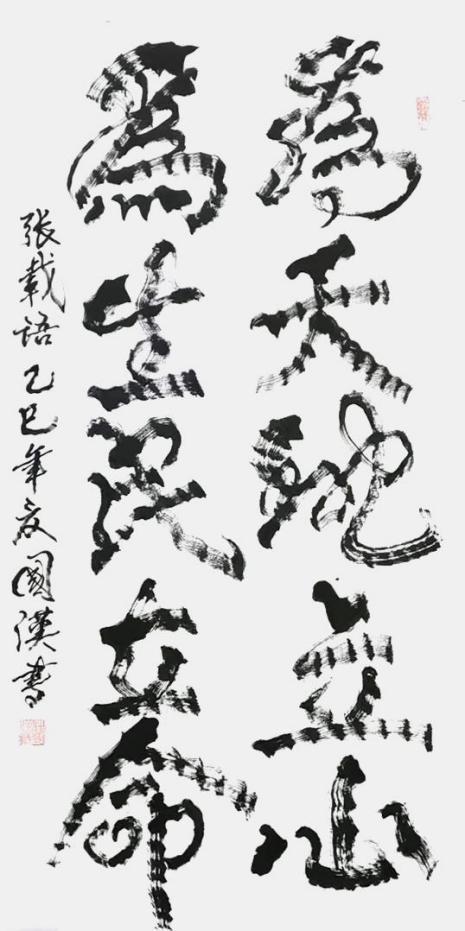 為天地立心
為生民立命
張載語乙巳年夏國漢書